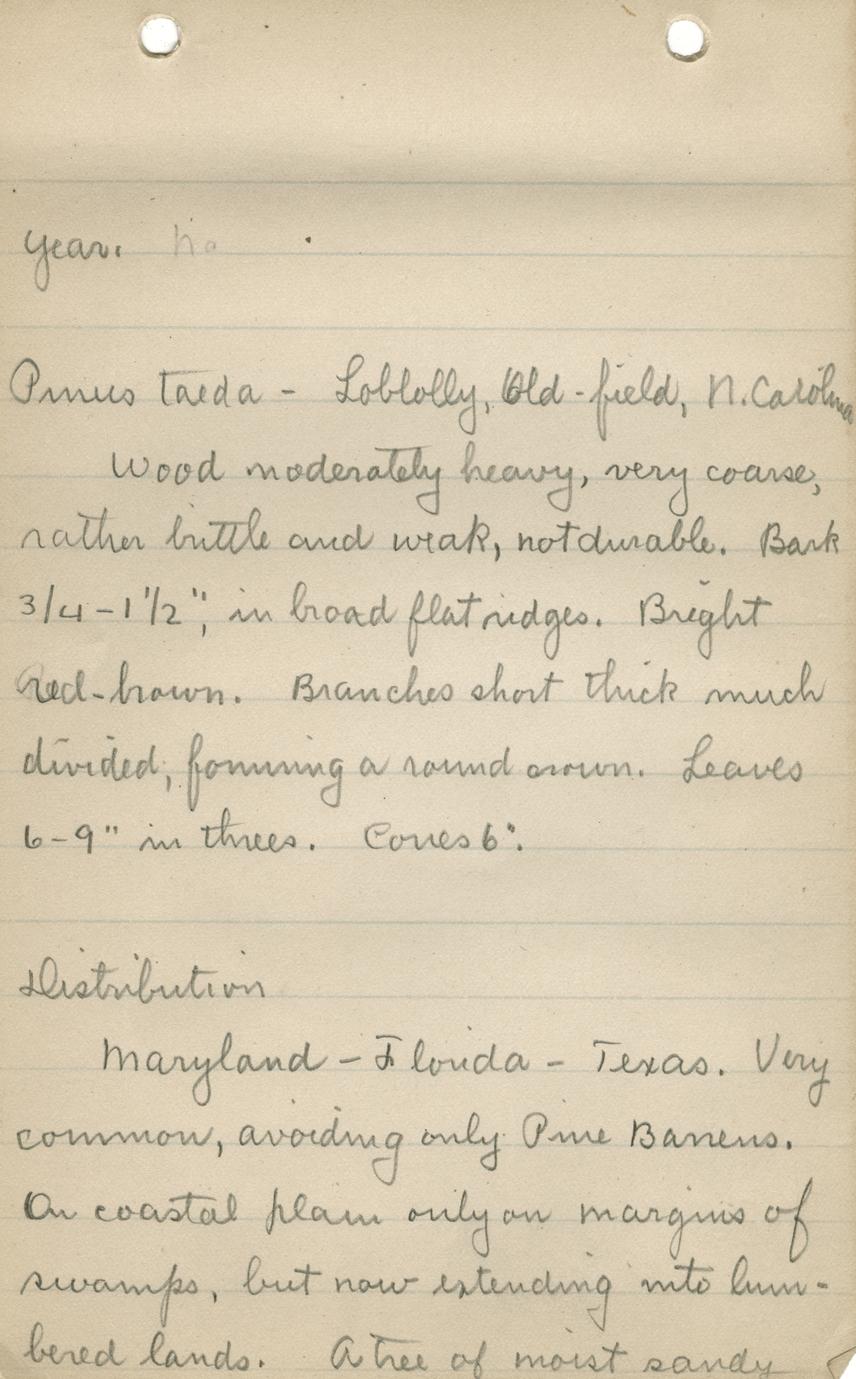 Year. no
Pinus taeda - Loblolly, Old-field, N. Carolina
Wood moderately heavy, very coarse,
rather brittle and weak, not durable. Bark
3/4-1 1/2", in broad flat ridges. Bright
red-brown. Branches short thick much
divided, forming a round crown. Leaves
6-9" in threes. Cones 6".
Distribution
Maryland - Florida - Texas. Very
common, avoiding only Pine Barrens.
On coastal plain only on margins of
swamps, but now extending into lum-
bered lands. A tree of moist sandy